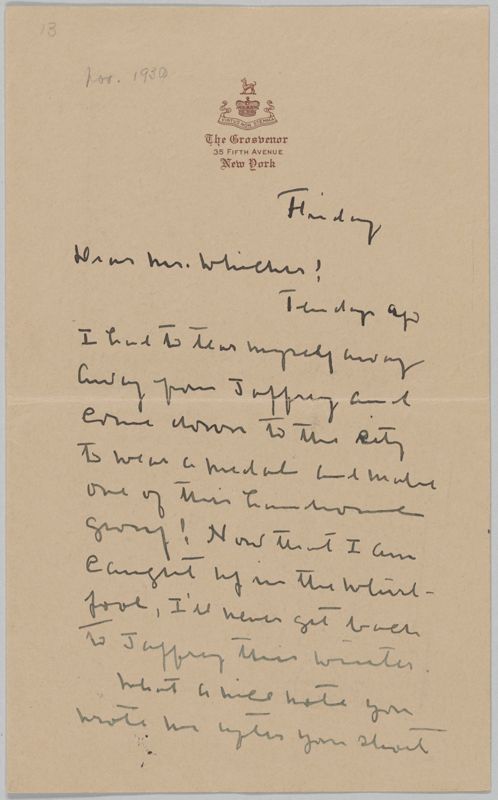 13
Nov. 1930
VIRTUS NON STEMMA
The Grosvenor
35 FIFTH AVENUE
New York
Friday
Dear Mr. Whicher!
Ten days ago
I had to tear myself away
away from Jaffrey and
come down to the city
to wear a medal and make
one of this handsome
group! Now that I am
caught up in the whirl-
pool, I'll never get back
to Jaffrey this winter.
What a nice note you
wrote me after your short